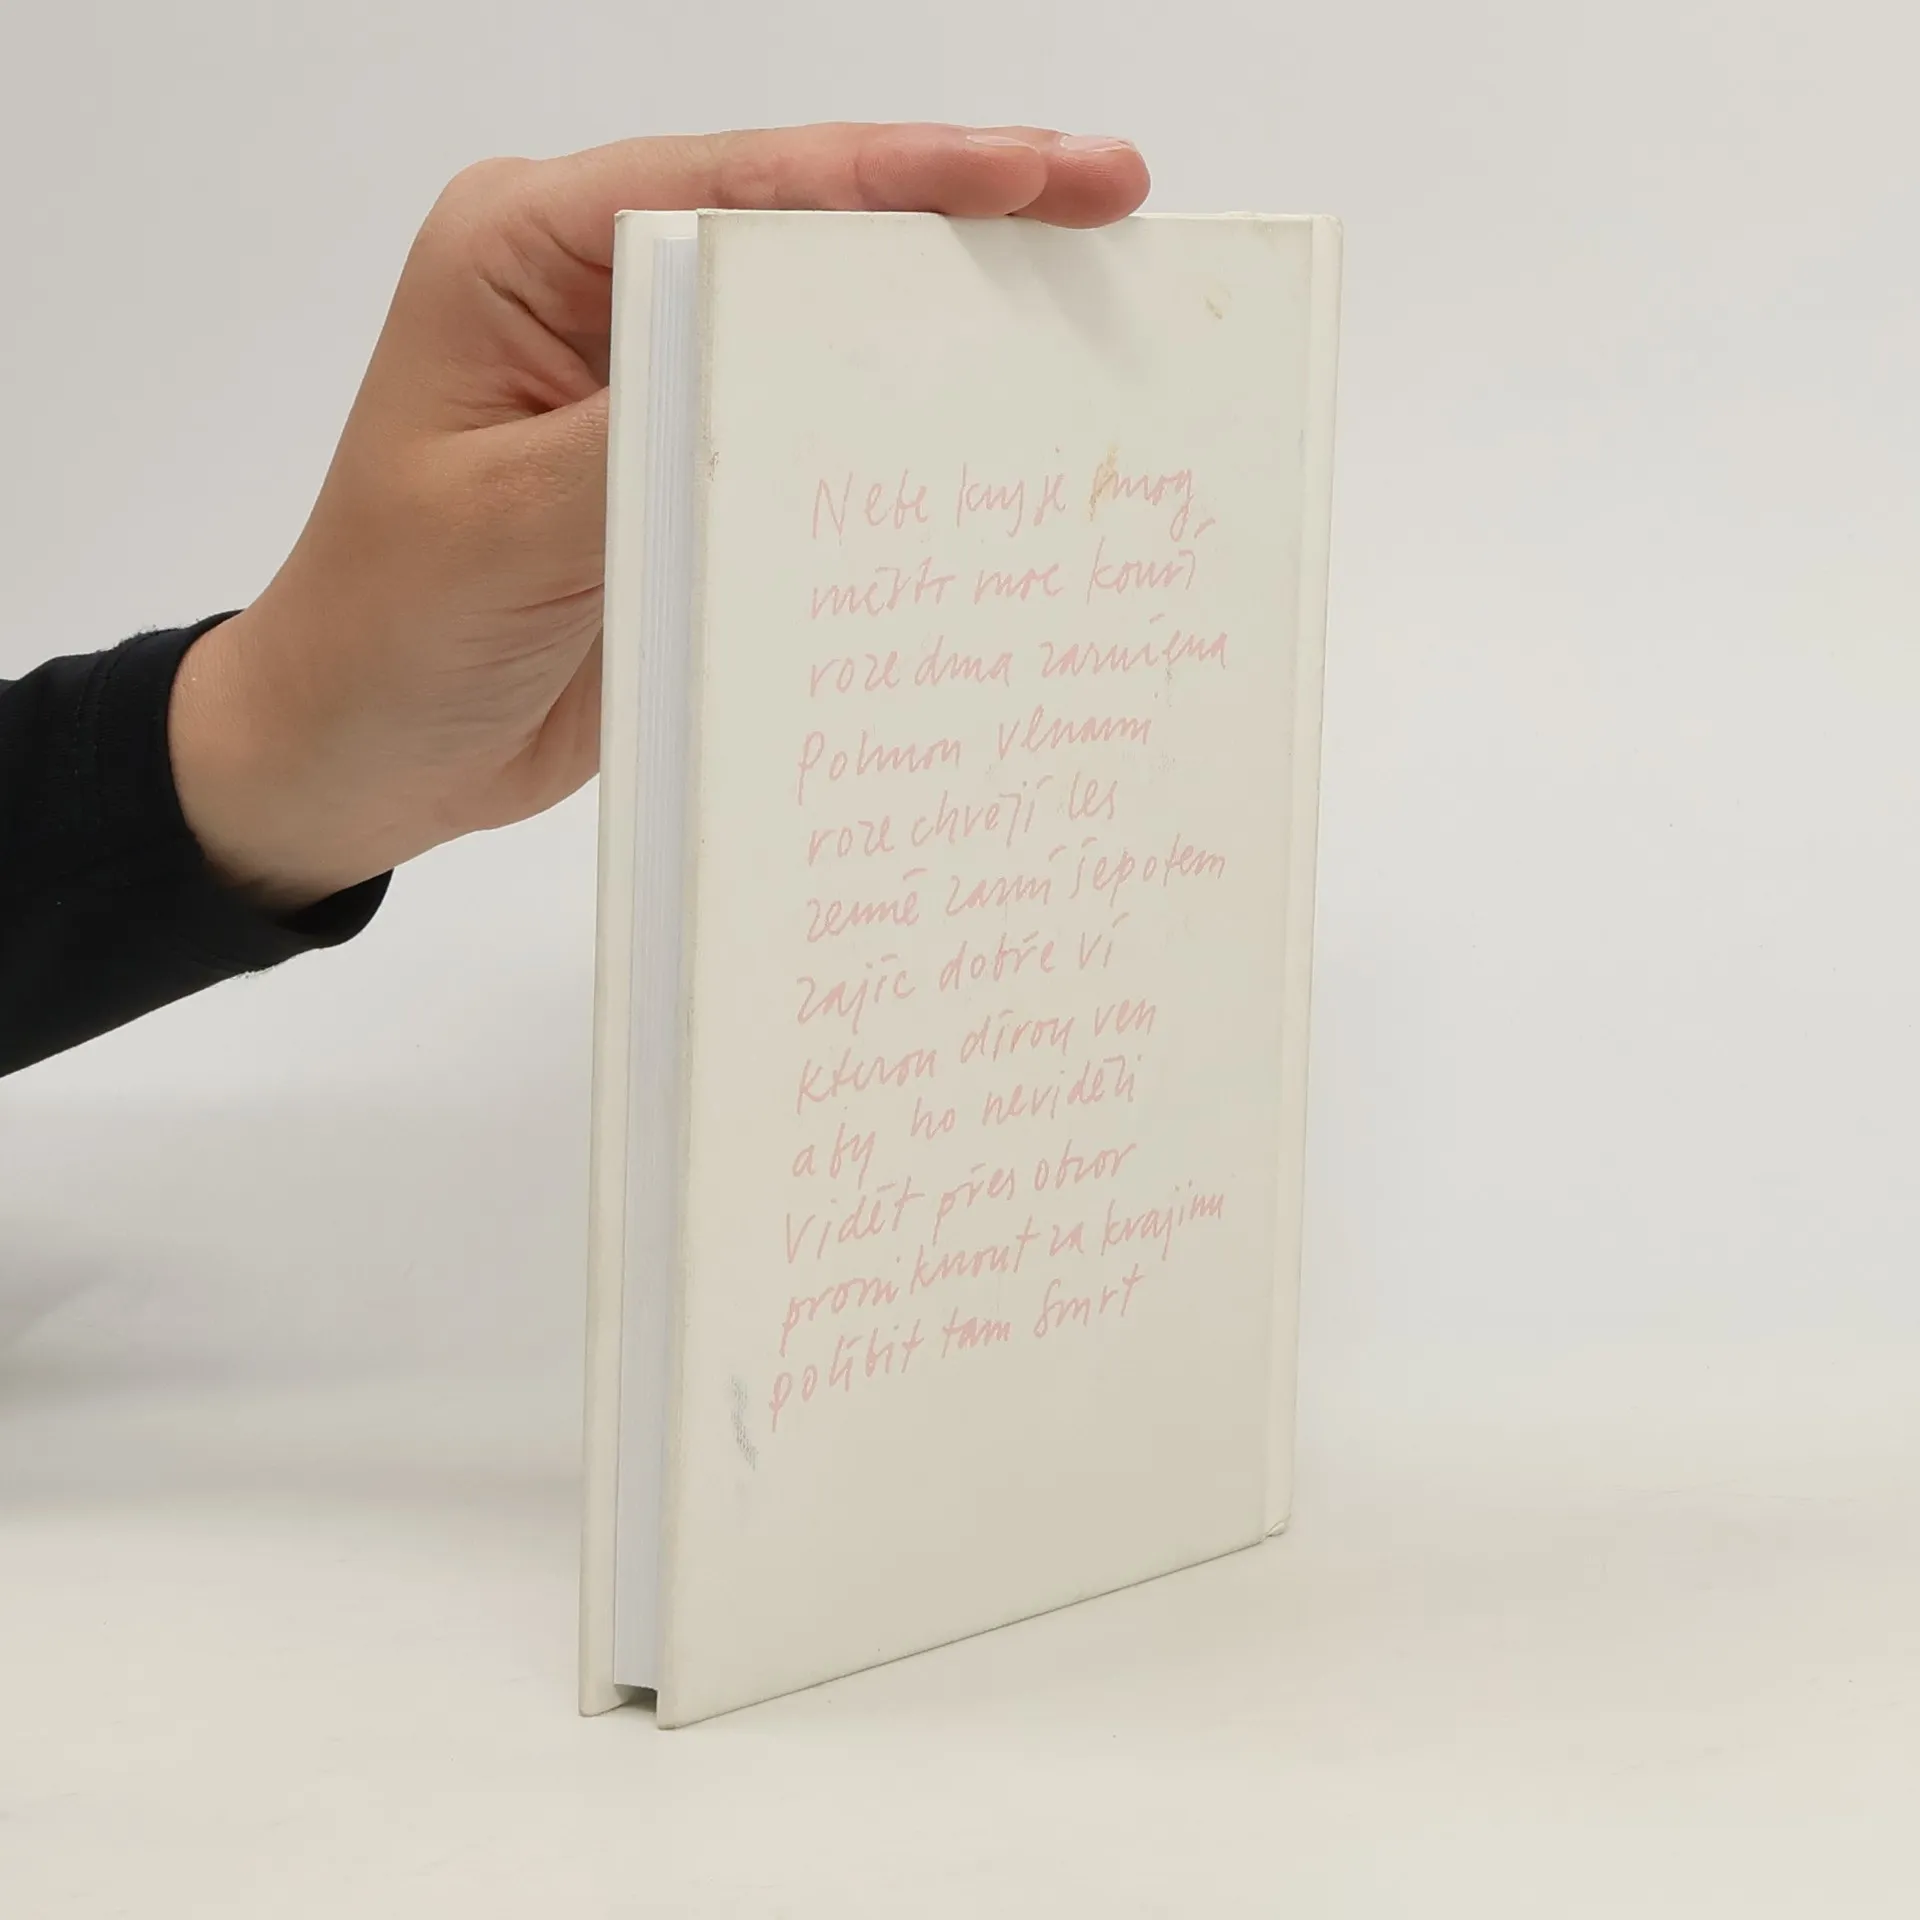 Nebe kryje smog
město moc kouří
rozedma zaručena
Pohnou vlnami
rozechvějí les
země zazní šepotem
zajíc dobře ví
kterou dírou ven
aby ho neviděli
Vidět přes obzor
proniknout za krajinu
políbit tam smrt